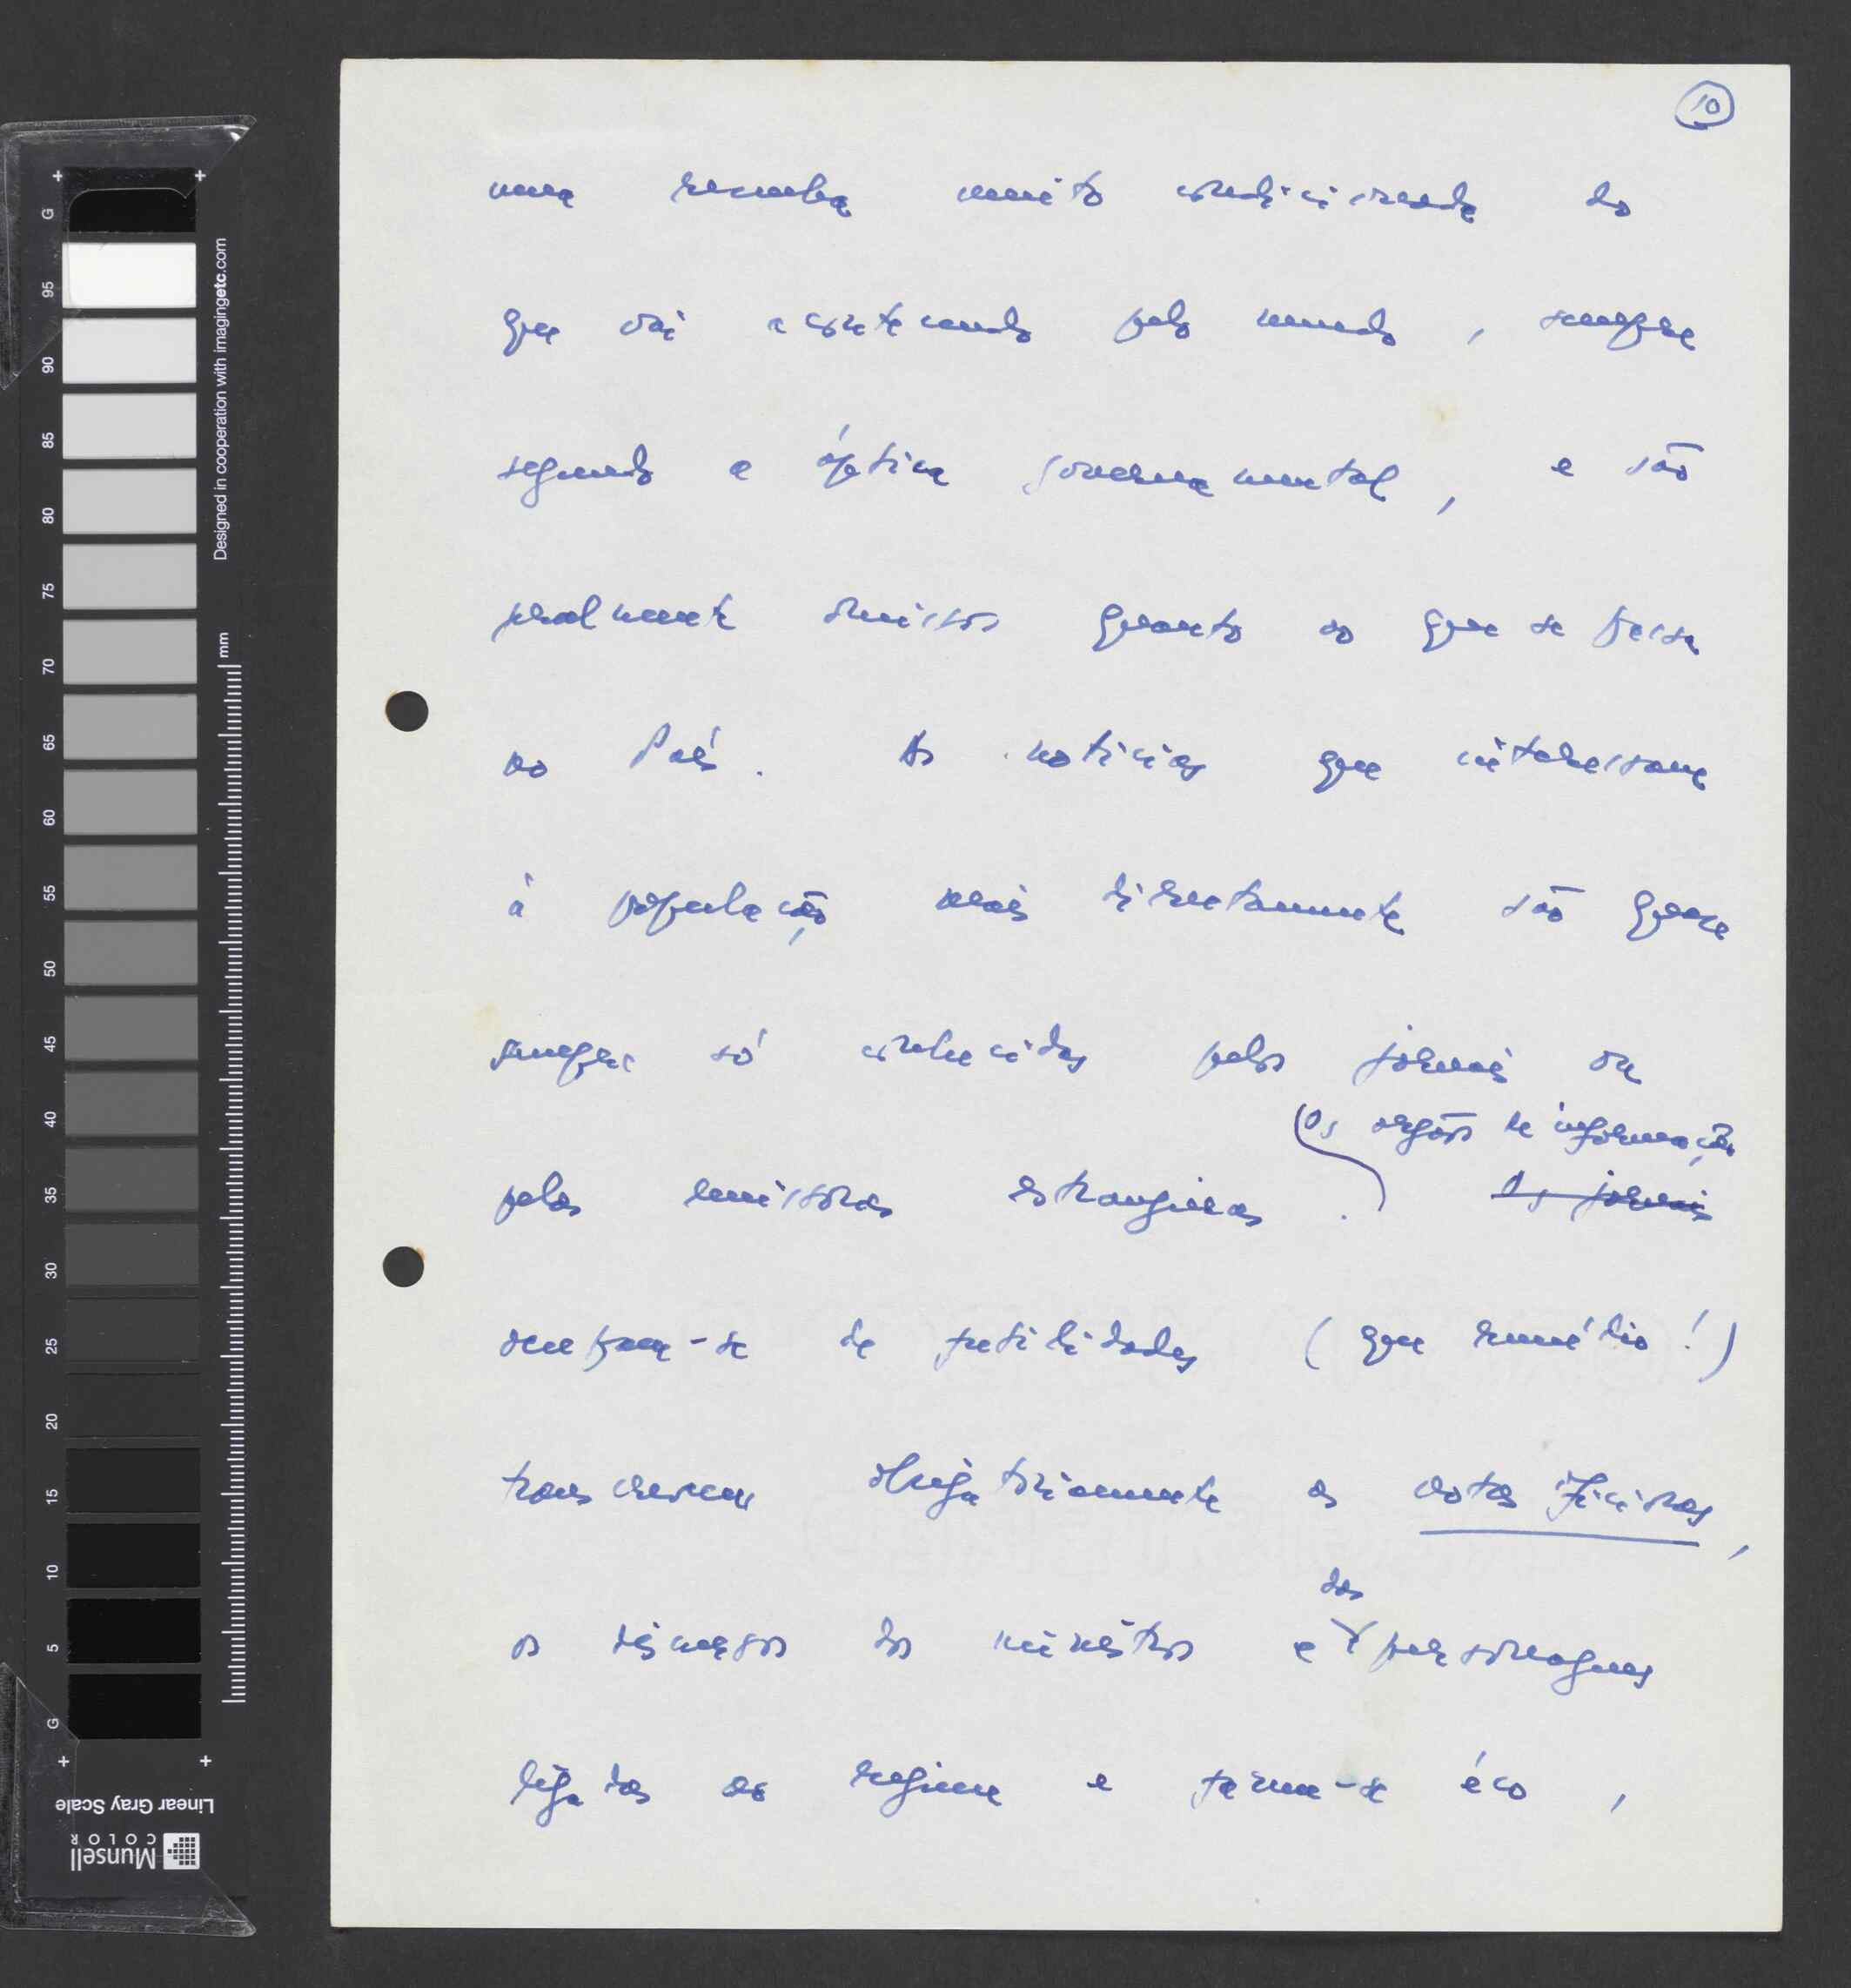 10
uma resenha muito condicionada do
que vai acontecendo pelo mundo, sempre
segundo a óptica governamental, e são
geralmente omissos quanto ao que se passa
no País. As noticias que interessam
à população mais directamente são quase
sempre só conhecidas pelos jornais ou
Os orgãos de informação
pelas emissoras estrangeiras. Os jornais
ocupam-se de futilidades (que remédio!)
transcrevem obrigatòriamente as notas oficiosas,
das
os discursos dos ministros e personagens
ligadas ao regime e fazem-se éco,
G
95
90
85
80
75
70
65
60
55
50
45
40
35
30
25
20
15
10
5
G
Designed in cooperation with imagingetc.com
mm
Linear Gray Scale
Munsell
COLOR